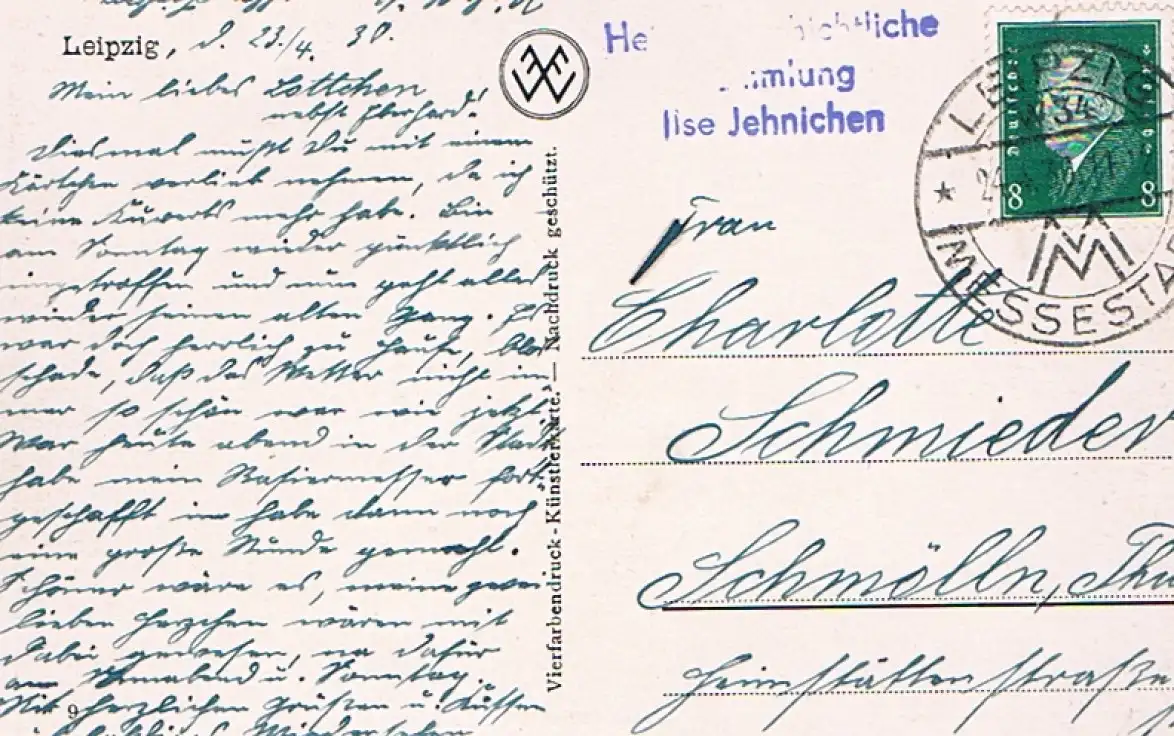 Leipzig, d. 23./4. 30.
Mein liebes Lottchen
nebst Eberhard!
Diesmal mußt Du mit einem
Kärtchen verlieb nehmen, da ich
keine Kuverts mehr habe. Bin
am Sonntag wieder pünktlich
eingetroffen und nun geht alles
wieder seinen alten Gang. Es
war doch herrlich zu Hause, bloß
schade, daß das Wetter nicht im-
mer so schön war wie jetzt.
War heute abend in der Stadt
habe mein Rasiermesser fort-
geschafft u. habe dann noch
eine große Runde gemacht.
Schöner wäre es, meine zwei
lieben Herzchen wären mit
dabei gewesen, na dafür
am Sonnabend u. Sonntag.
Mit herzlichen Grüßen u. Küssen
Wiedersehen
9
Vierfarbendruck-Künstlerkarte. — Nachdruck geschützt.
He ichtliche
mlung
Ilse Jehnichen
Deutsches
8 8
LEIPZIG
W 34
24.
MESSESTA
Frau
Charlotte
Schmieder
Schmölln, Thü
Heimstättenstraße